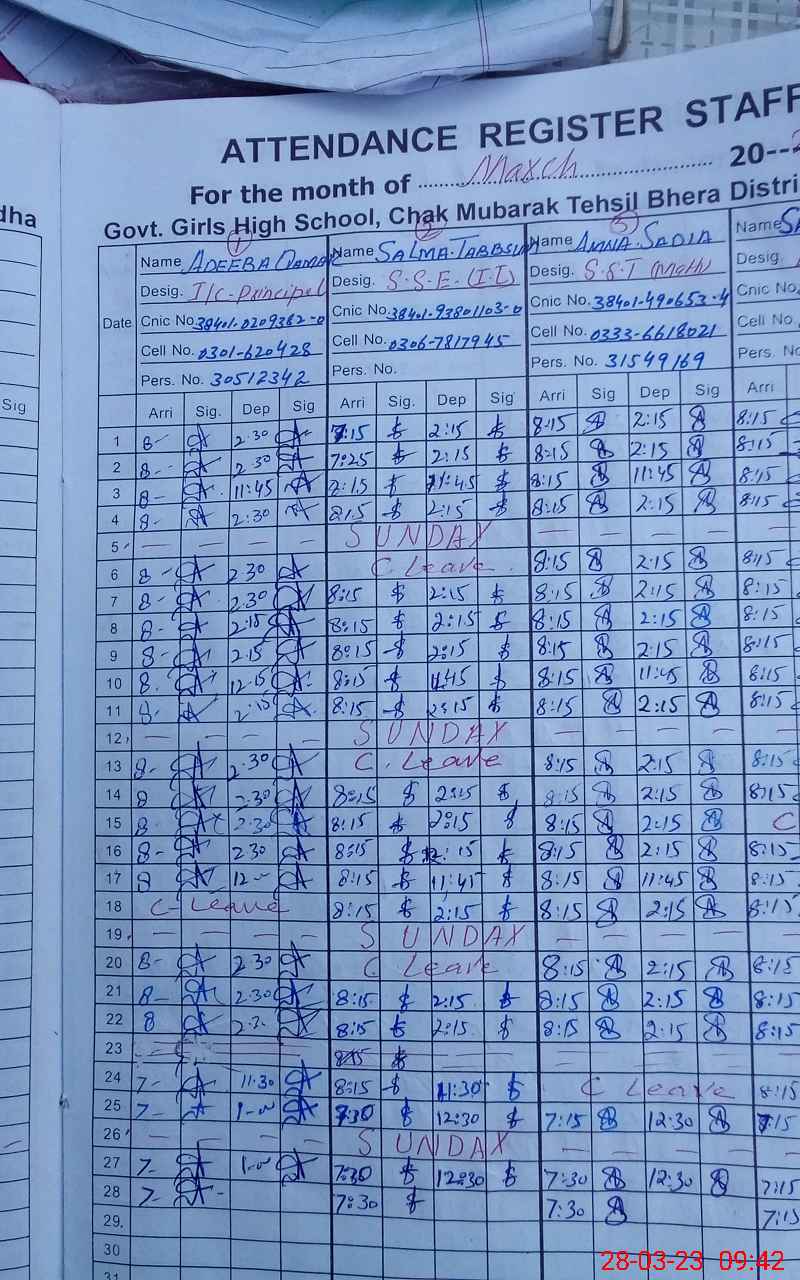 ATTENDANCE REGISTER STAFF
For the month of March 20--
Govt. Girls High School, Chak Mubarak Tehsil Bhera Distri
dha
Sig
1 2 3
Date
Name ADEEBA Name SALMA Name AMNA SADIA Name
Desig. I/C-Principal Desig. S.S.E. (I.I) Desig. S.S.T (Math) Desig.
Cnic No. 38401-0209362-0 Cnic No. 38401-93801103-0 Cnic No. 38401-490653-4 Cnic No.
Cell No. 0301-620428 Cell No. 0306-7817945 Cell No. 0333-6618021 Cell No.
Pers. No. 30512342 Pers. No. Pers. No. 31549169 Pers. No.
Arri Sig. Dep Sig Arri Sig. Dep Sig Arri Sig Dep Sig Arri
1 8- 2.30 7:15 2:15 8:15 2:15 8:15
2 8- 2.30 7:25 2:15 8:15 2:15 8:15
3 8- 11:45 11:45 8:15 11:45 8:15
4 8- 2:30 8:15 2:15 8:15 2:15 8:15
5 — — — — SUNDAY — — — —
6 8- 2.30 C Leave 8:15 2:15 8:15
7 8- 2.30 8:15 2:15 8:15 2:15 8:15
8 8- 2.15 8:15 2:15 8:15 2:15 8:15
9 8- 2.15 8:15 2:15 8:15 2:15 8:15
10 8. 12.15 8:15 11:45 8:15 11:45 8:15
11 8- 2.15 8:15 2:15 8:15 2:15 8:15
12 — — — — SUNDAY — — — —
13 8- 2.30 C. Leave 8:15 2:15 8:15
14 8 2.30 8:15 2:15 8:15 2:15 8:15
15 8- 2.30 8:15 2:15 8:15 2:15 C
16 8- 2.30 8:15 2:15 8:15 2:15 8:15
17 8 12- 8:15 11:45 8:15 11:45 8:15
18 C-Leave 8:15 2:15 8:15 2:15 8:15
19. — — — — SUNDAY — — — —
20 8- 2.30 C Leave 8:15 2:15 8:15
21 8- 2.30 8:15 2:15 8:15 2:15 8:15
22 8 8:15 2:15 8:15 2:15 8:15
23 8:15
24 7- 11.30 8:15 11:30 C Leave 8:15
25 7- 7:30 12:30 7:15 12:30 7:15
26 — — — — SUNDAY — — — —
27 7- 7:30 12:30 7:30 12:30 7:15
28 7- 7:30 7:30 7:15
29.
30
31
28-03-23 09:42